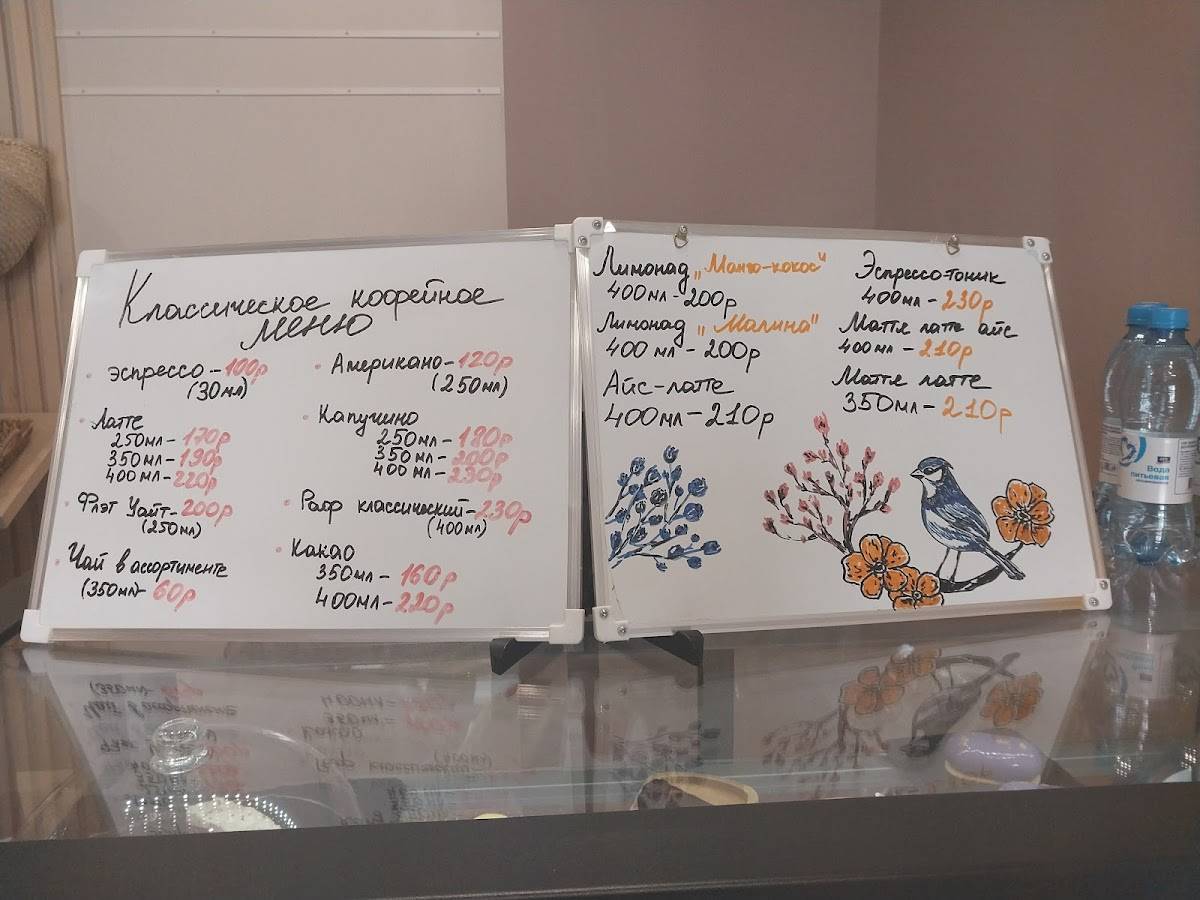 Классическое кофейное
меню
Эспрессо-100р
(30мл)
Латте
250мл-170р
350мл-190р
400мл-220р
Флэт Уайт-200р
(250мл)
Чай в ассортименте
(350мл)-60р
Американо-120р
(250мл)
Капучино
250мл-180р
350мл-200р
400мл-230р
Раф классический-230р
(400мл)
Какао
350мл-160р
400мл-220р
Лимонад „Манго-кокос"
400мл-200р
Лимонад „Малина"
400мл-200р
Айс-латте
400мл-210р
Эспрессо-тоник
400мл-230р
Матча латте айс
400мл-210р
Матча латте
350мл-210р
Вода
питьевая